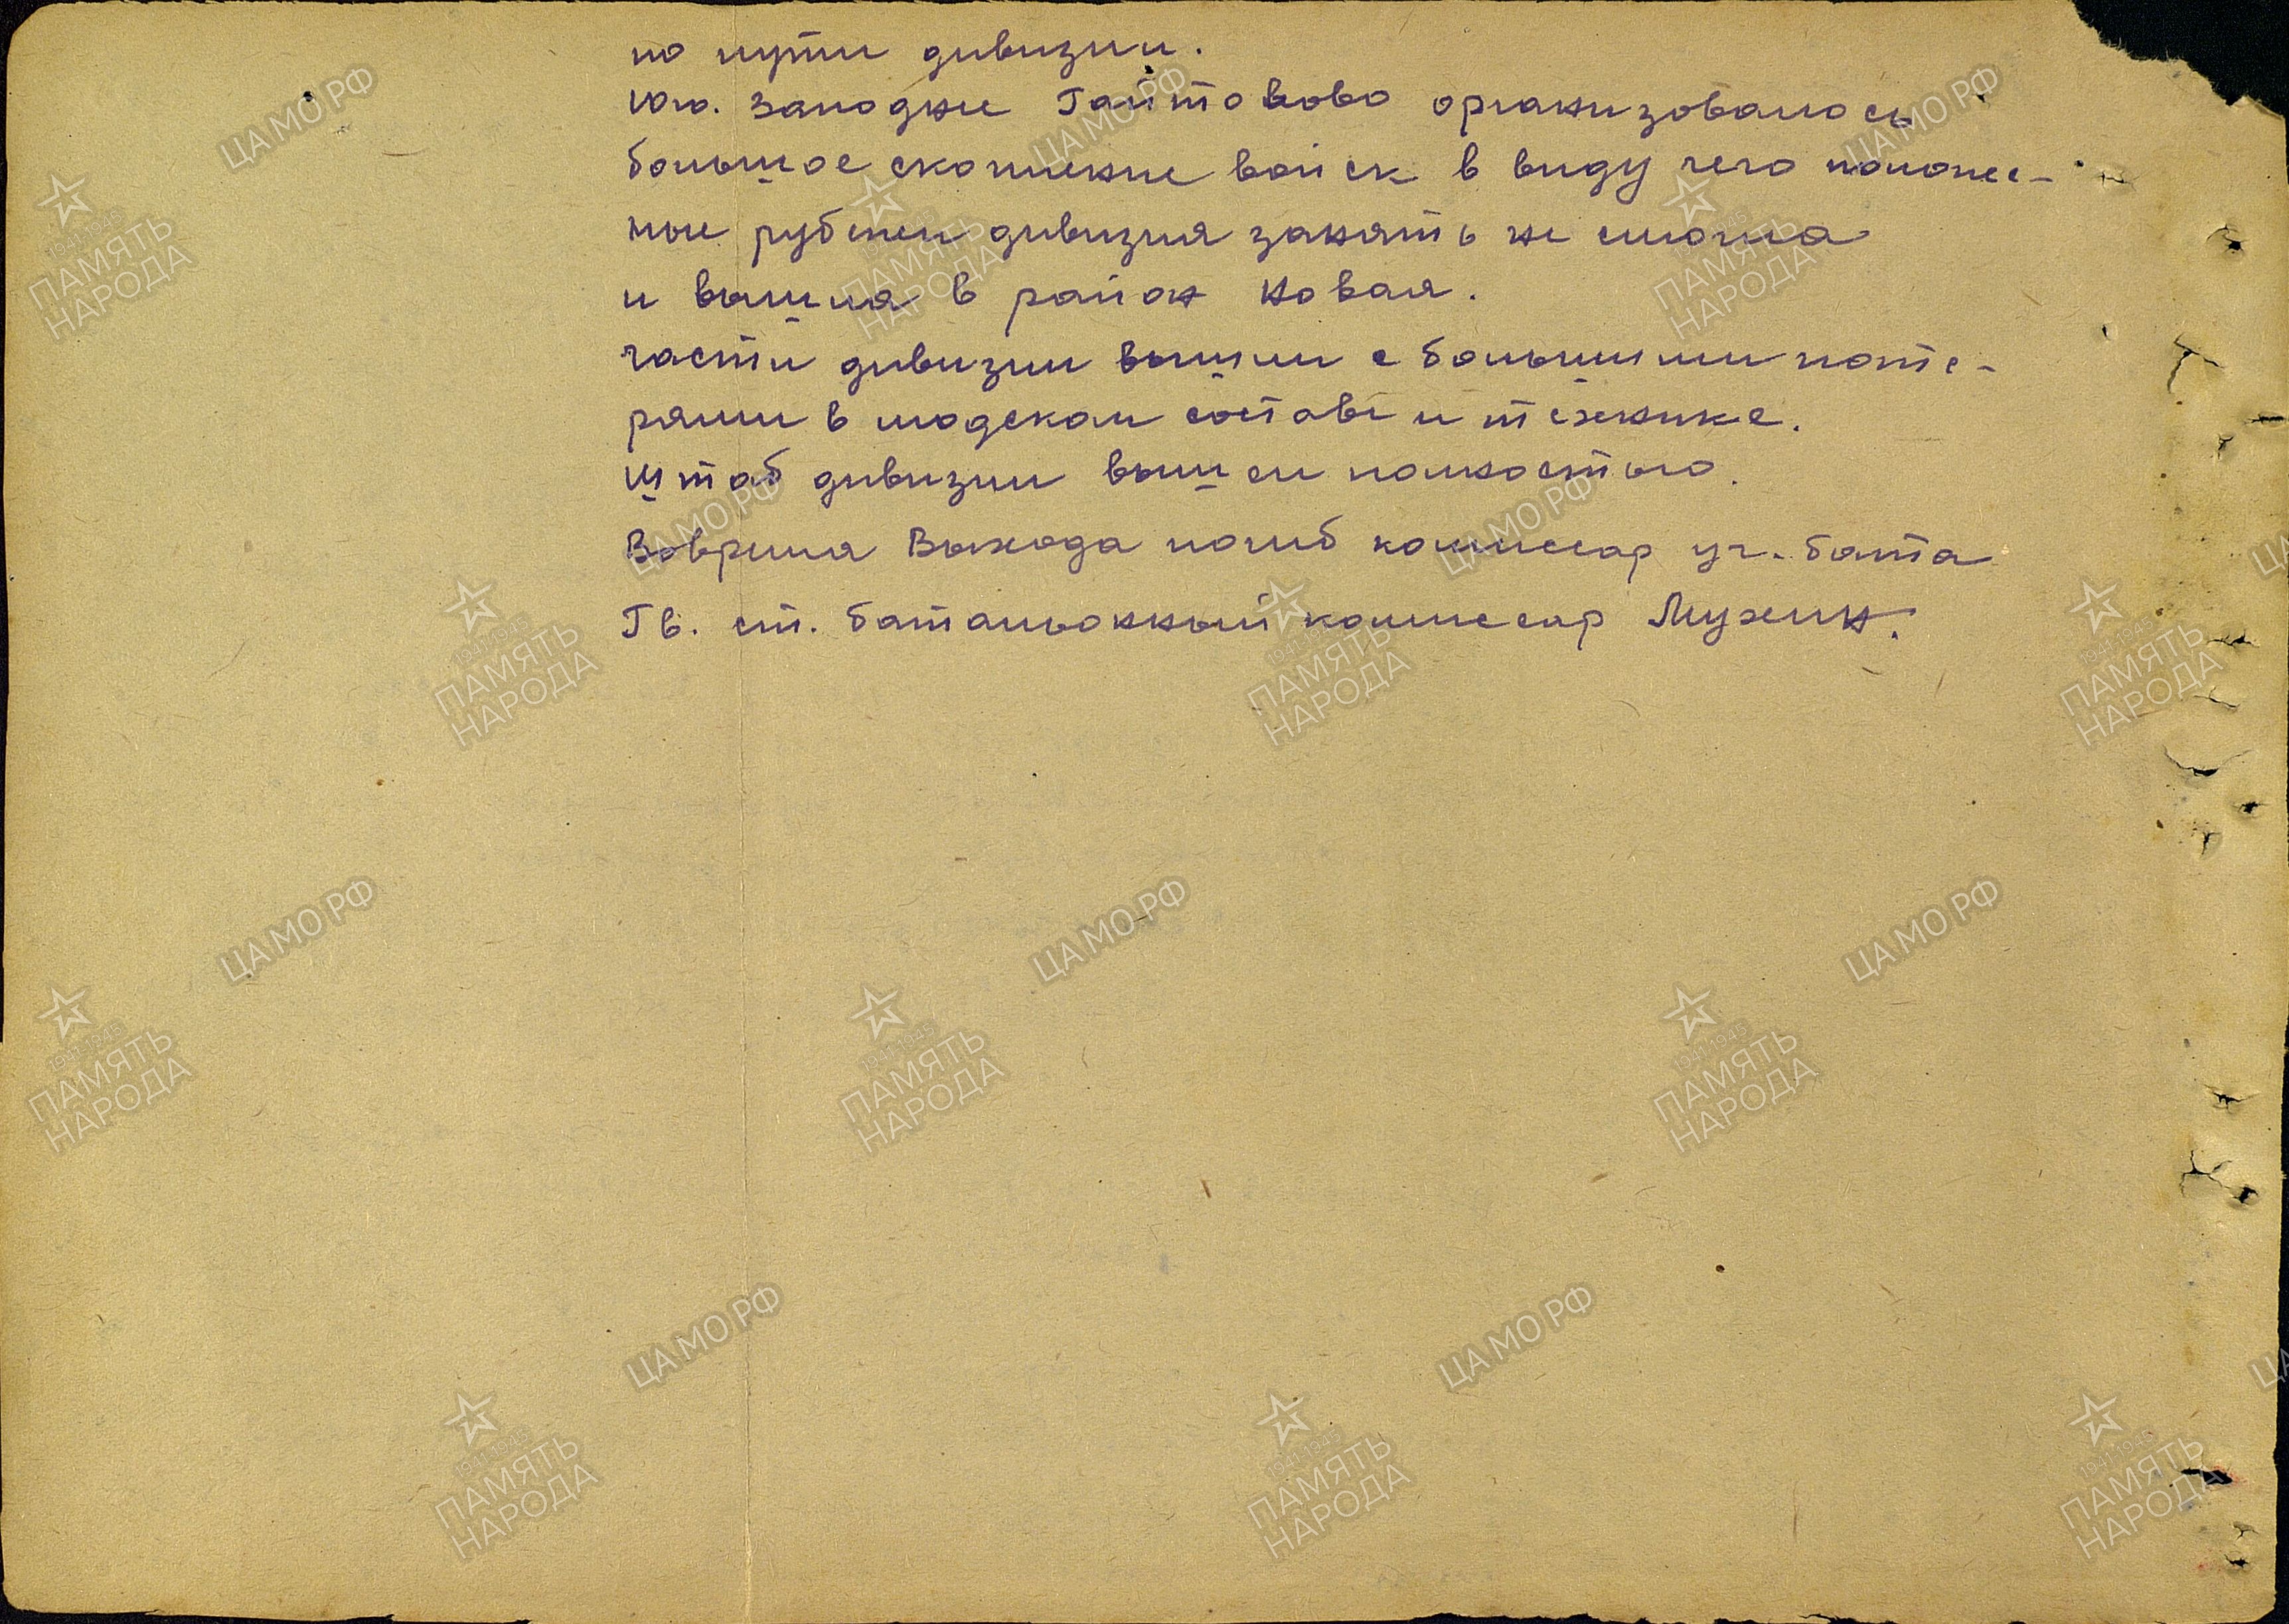 по пути дивизии.
Юго. западнее Гайтолово организовалось
большое скопление войск в виду чего положе-
ные рубежи дивизия занять не смогла
и вышла в район Новая.
части дивизии вышли с большими поте-
рями в людском составе и технике.
Штаб дивизии вышел полностью.
Вовремя Выхода погиб комиссар уч. бата
Гв. ст. батальонный комиссар Мухин.
ЦАМО РФ
1941-1945
ПАМЯТЬ
НАРОДА